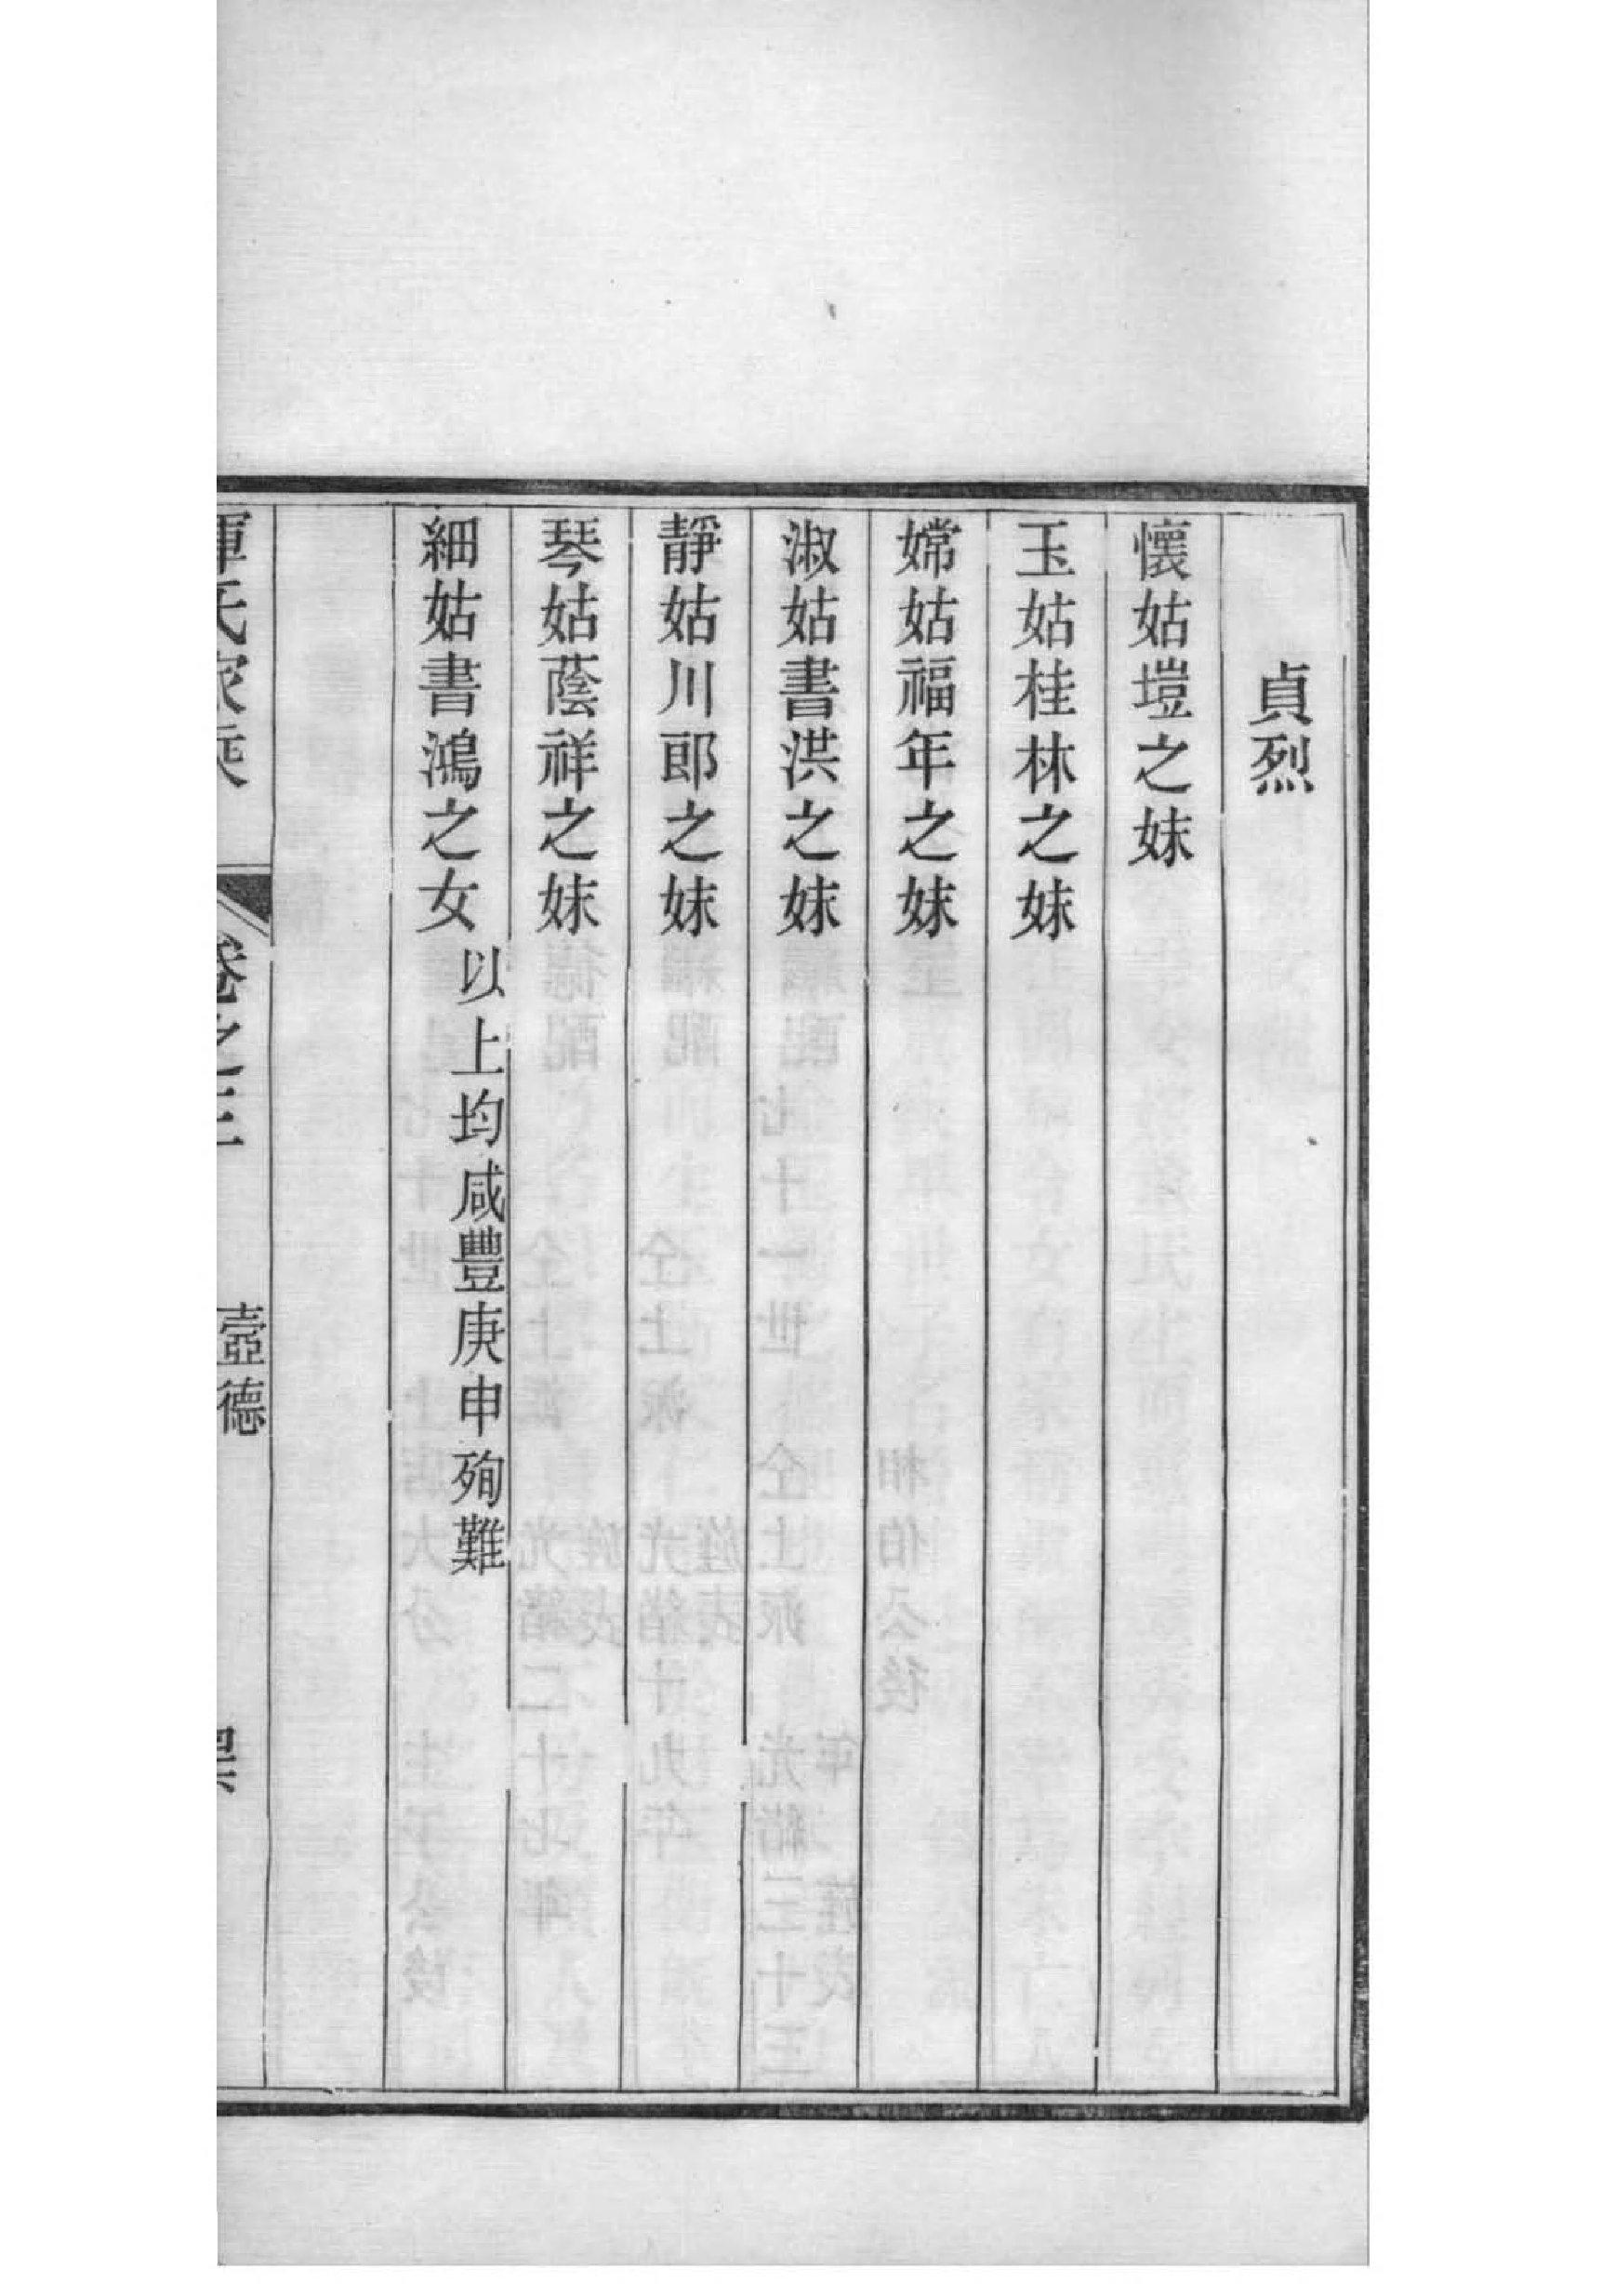 貞烈
懷姑塏之妹
玉姑桂林之妹
嫦姑福年之妹
淑姑書洪之妹
靜姑川郎之妹
琴姑蔭祥之妹
細姑書鴻之女 以上均咸豐庚申殉難
氏家乘 卷之三 壼德